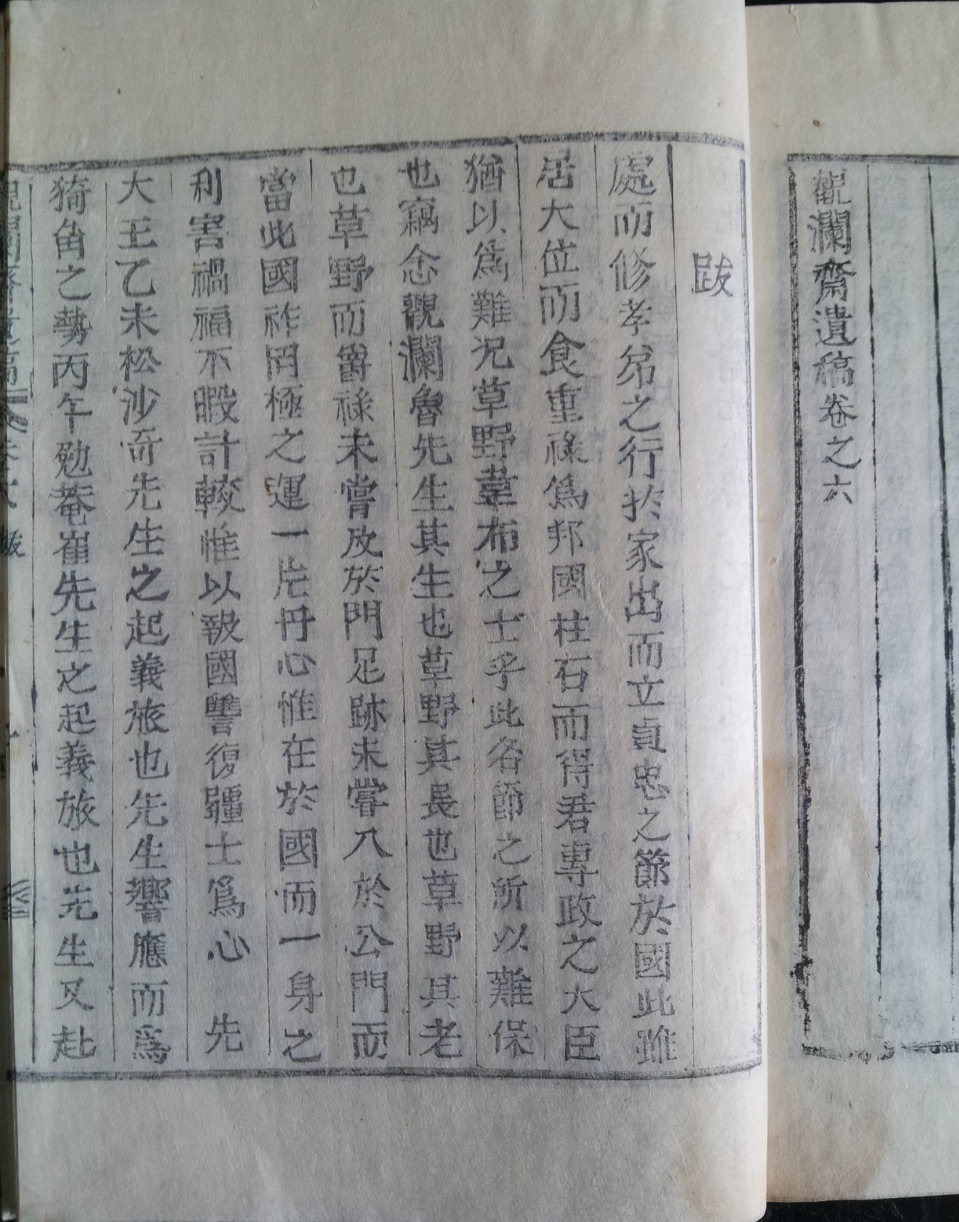 觀瀾齋遺稿卷之六
跋
處而修孝弟之行於家出而立貞忠之節於國此雖
居大位而食重祿爲邦國柱石而得君專政之大臣
猶以爲難况草野韋布之士乎此名節之所以難保
也竊念觀瀾魯先生其生也草野其長也草野其老
也草野而爵祿未嘗及於門足跡未嘗入於公門而
當此國祚罔極之運一片丹心惟在於國而一身之
利害禍福不暇計較惟以報國讐復疆土爲心 先
大王乙未松沙奇先生之起義旅也先生響應而爲
猗角之勢丙午勉菴崔先生之起義旅也先生又赴